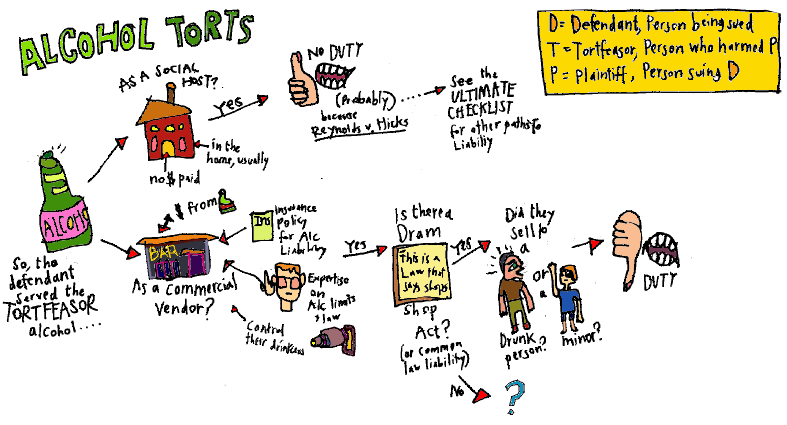 ALCOHOL TORTS
D = Defendant, Person being sued
T = Tortfeasor, Person who harmed P
P = Plaintiff, Person suing D
AS A SOCIAL
HOST?
yes
NO DUTY
(Probably)
because
Reynolds v. Hicks
See the
ULTIMATE
CHECKLIST
for other paths to
Liability
in the
home, usually
no $ paid
ALCOHO
So, the
defendant
served the
TORTFEASOR
alcohol....
$ from
BAR
As a commercial
Vendor?
Ins
Insurance
Policy
for Alc
Liability
Expertise
on
Alc limits
& law
Control
their drinkers
yes
Is there a
Dram
This is a
Law that
says shops
Shop
Act?
(or common
law liability)
No
?
yes
Did they
sell to
a
Drunk
person?
or
a
minor?
DUTY